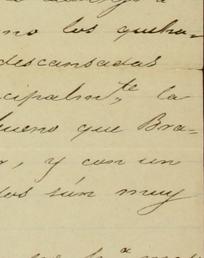 no los queha-
descansadas
cipalm.te la
bueno que Bra-
, y con un
dos sún muy